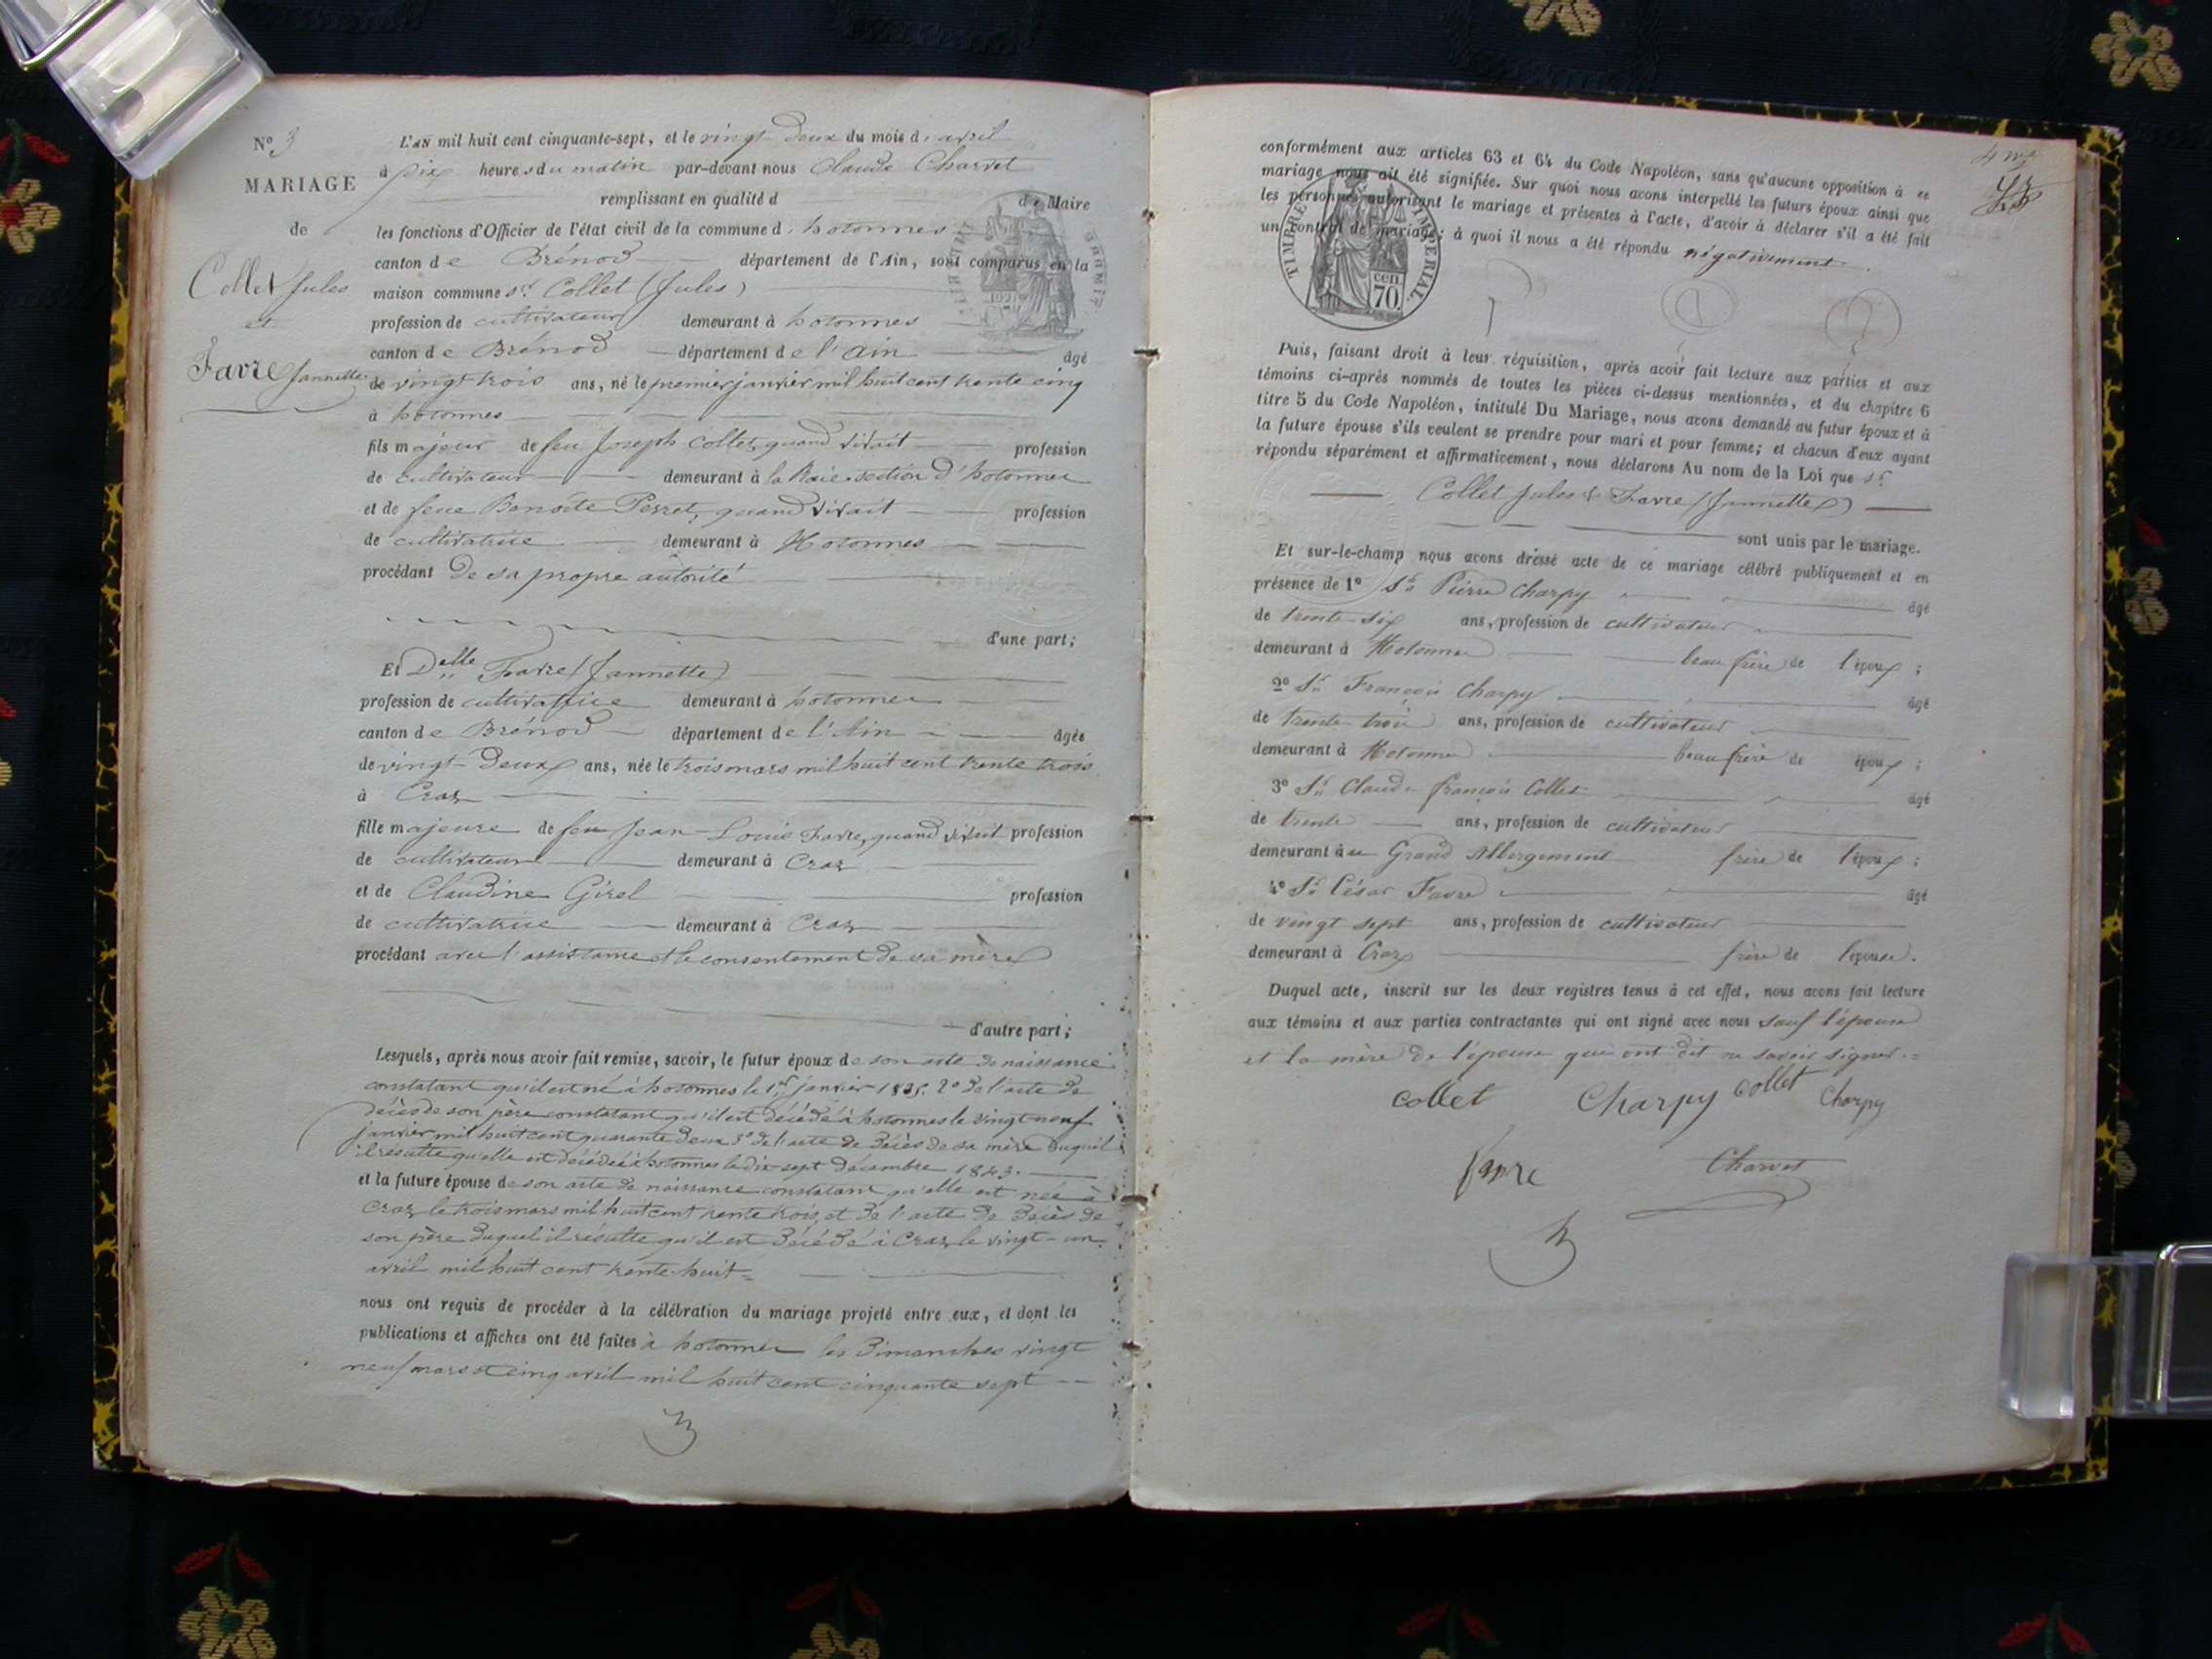 N° 3
MARIAGE
de
Collet Jules
et
Favre Jannette
L'AN mil huit cent cinquante-sept, et le vingt deux du mois d'avril
à six heures du matin par-devant nous Claude Charvet
remplissant en qualité de Maire
les fonctions d'Officier de l'état civil de la commune d'hotonnes
canton de Brénod département de l'Ain, sont comparus en la
maison commune sr Collet (Jules)
profession de cultivateur demeurant à hotonnes
canton de Brénod département de l'ain âgé
de vingt trois ans, né le premier janvier mil huit cent trente cinq
à hotonnes
fils majeur de feu Joseph Collet, quand vivait profession
de cultivateur demeurant à la section d'hotonnes
et de feue Benoite Perret, quand vivait profession
de cultivatrice demeurant à Hotonnes
procédant de sa propre autorité
d'une part;
Et Delle Favre (Jannette)
profession de cultivatrice demeurant à hotonnes
canton de Brénod département de l'Ain âgée
de vingt-deux ans, née le trois mars mil huit cent trente trois
à Craz
fille majeure de feu Jean-Louis Favre, quand vivait profession
de cultivateur demeurant à Craz
et de Claudine Girel profession
de cultivatrice demeurant à Craz
procédant avec l'assistance et le consentement de sa mère
d'autre part;
Lesquels, après nous avoir fait remise, savoir, le futur époux de son acte de naissance
constatant qu'il est né à hotonnes le 1er janvier 1835. 2° de l'acte de
décès de son père constatant qu'il est décédé à hotonnes le vingt neuf
janvier mil huit cent quarante deux 3° de l'acte de décès de sa mère duquel
il résulte qu'elle est décédée à hotonnes le dix sept décembre 1843.
et la future épouse de son acte de naissance constatant qu'elle est née à
Craz le trois mars mil huit cent trente trois, et de l'acte de décès de
son père duquel il résulte qu'il est décédé à Craz le vingt-un
avril mil huit cent trente-huit
nous ont requis de procéder à la célébration du mariage projeté entre eux, et dont les
publications et affiches ont été faites à hotonnes les dimanches vingt
neuf mars et cinq avril mil huit cent cinquante sept
conformément aux articles 63 et 64 du Code Napoléon, sans qu'aucune opposition à ce
mariage nous ait été signifiée. Sur quoi nous avons interpellé les futurs époux ainsi que
les personnes autorisant le mariage et présentes à l'acte, d'avoir à déclarer s'il a été fait
un contrat de mariage; à quoi il nous a été répondu négativement.
TIMBRE IMPÉRIAL
cen 70
Puis, faisant droit à leur réquisition, après avoir fait lecture aux parties et aux
témoins ci-après nommés de toutes les pièces ci-dessus mentionnées, et du chapitre 6
titre 5 du Code Napoléon, intitulé Du Mariage, nous avons demandé au futur époux et à
la future épouse s'ils veulent se prendre pour mari et pour femme; et chacun d'eux ayant
répondu séparément et affirmativement, nous déclarons Au nom de la Loi que sr
Collet Jules & Favre (Jannette)
sont unis par le mariage.
Et sur-le-champ nous avons dressé acte de ce mariage célébré publiquement et en
présence de 1° Sr Pierre Charpy âgé
de trente-six ans, profession de cultivateur
demeurant à Hotonne beau frère de l'époux;
2° Sr François Charpy âgé
de trente trois ans, profession de cultivateur
demeurant à Hotonne beau frère de époux;
3° Sr Claude françois Collet âgé
de trente ans, profession de cultivateur
demeurant au Grand Abbergement frère de l'époux;
4° Sr César Favre âgé
de vingt sept ans, profession de cultivateur
demeurant à Craz frère de l'épouse.
Duquel acte, inscrit sur les deux registres tenus à cet effet, nous avons fait lecture
aux témoins et aux parties contractantes qui ont signé avec nous sauf l'épouse
et la mère de l'épouse qui ont dit ne savoir signer.
collet Charpy collet Charpy
favre Charvet